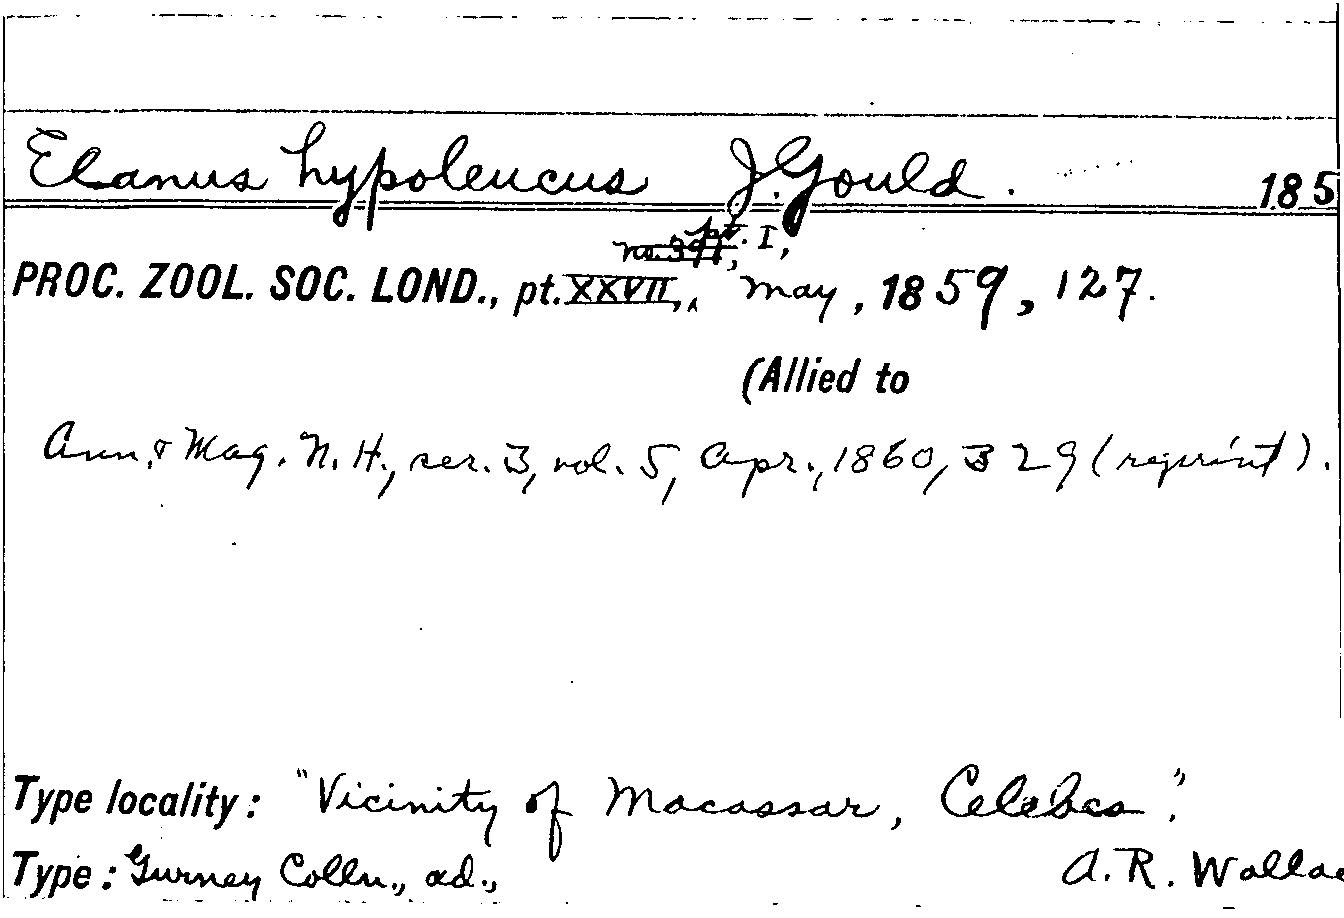 Elanus hypoleucus J. Gould. 185
no. 391, pt. I,
PROC. ZOOL. SOC. LOND., pt. XXVII, ‸ May, 1859, 127.
(Allied to
Ann. & Mag. N. H., ser. 3, vol. 5, Apr., 1860, 329 (reprint).
Type locality: "Vicinity of Macassar, Celebes".
Type: Gurney Colln., ad., A. R. Wallac